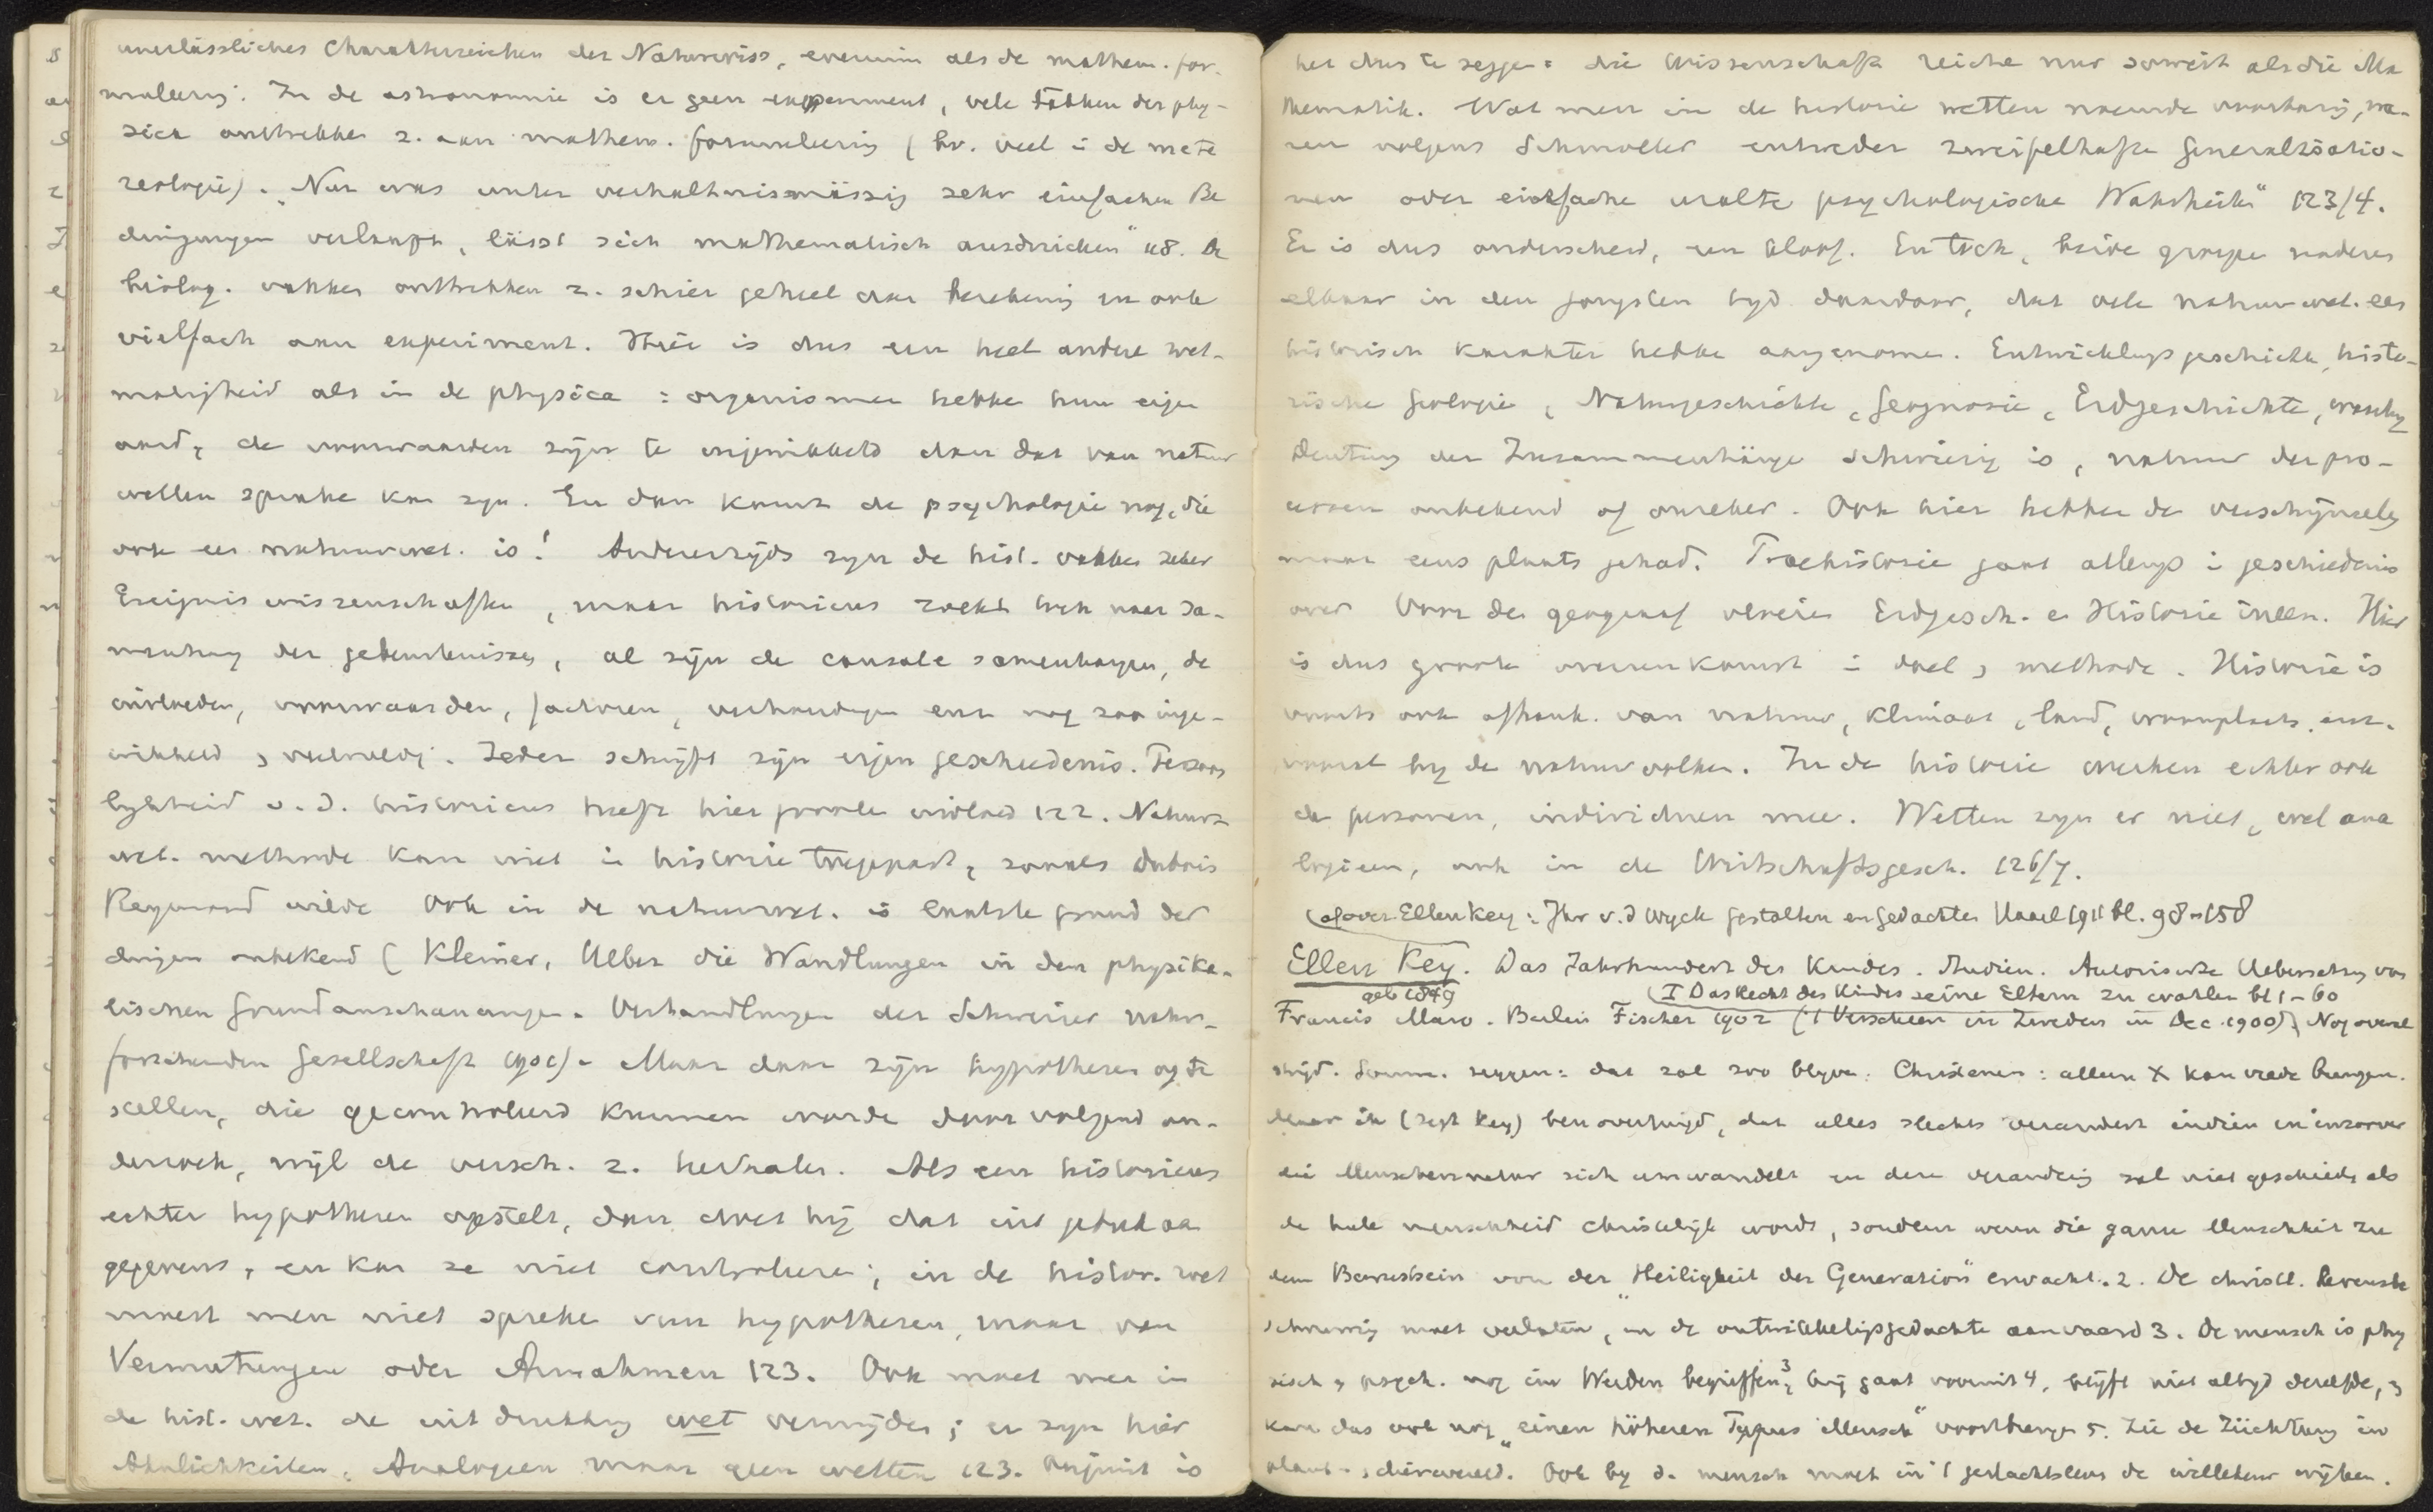 unerlässliches Charakterzeichen der Naturwiss, evenmin als de mathem. for-
muleering. In de astronomie is er geen experiment, vele takken der phy-
sica onttrekken z. aan mathem. formuleering (bv. veel i de mete
reologie). „Nur was unter verhältnismässig sehr einfachen Be
dingungen verläuft, lässt sich mathematisch ausdrücken" 118. De
biolog. vakken onttrekken z. schier geheel aan berekening en ook
vielfach aan experiment. Hier is dus een heel andere wet-
matigheid als in de physica: organismen hebbe hun eigen
aard, de voorwaarden zijn te ingewikkeld dan dat van natuur
wetten sprake kan zijn. En dan komt de psychologie nog, die
ook een natuurwet. is! Anderzijds zijn de hist. vakken zeker
Ereigniswissenschaften, maar historicus zoekt toch naar sa-
menhang der gebeurtenissen, al zijn de causale samenhangen, de
invloeden, voorwaarden, factoren, verhoudingen enz nog zoo inge-
wikkeld en veelvuldig. Ieder schrijft zijn eigen geschiedenis. Persoon
lijkheid v. d. historicus heeft hier groote invloed 122. Natuur
wet. methode kan niet in historie toegepast, zooals Dubois
Reymond wilde Ook in de natuurwet. is laatste grond der
dingen onbekend (Kleiner, Ueber die Wandlungen in den physika-
lischen Grundanschauungen. Verhandlungen der Schweizer natur-
forschenden Gesellschaft 1901). Maar daar zijn hypothesen op te
stellen, die gecontroleerd kunnen worde door volgend on-
derzoek, wijl de versch. z. herhalen. Als een historicus
echter hypothesen opstelt, dan doet hij dat uit gebrek aan
gegevens, en kan ze niet controleren; in de histor. wet
moest men niet spreke van hypothesen, maar van
Vermutungen oder Annahmen 123. Ook moet men in
de hist. wet. de uitdrukking wet vermijden; er zijn hier
Ähnlichkeiten, Analogieen maar geen wetten 123. Onjuist is
het dus te zeggen: die Wissenschaft reiche nur soweit als die Ma
thematik. Wat men in de historie wetten noemde voorbarig, wa-
ren volgens Schmoller entweder zweifelhafte Generalisatio-
nen oder einfache uralte psychologische Wahrheiten" 123/4.
Er is dus onderscheid, een kloof. En toch, beide groepen naderen
elkaar in den jongsten tijd daardoor, dat vele natuurwet. een
historisch karakter hebbe aangenomen. Entwicklungsgeschichte, histo-
rische Geologie, Naturgeschichte, Geognosie, Erdgeschichte, waarbij
Deutung der Zusammenhänge schwierig is, natuur der pro-
cessen onbekend of onzeker. Ook hier hebben de verschijnselen
maar eens plaats gehad. Praehistorie gaat allengs i geschiedenis
over Voor den geograaf vloeien Erdgesch. en Historie ineen. Hier
is dus groote overeenkomst i doel en methode. Historie is
voorts ook afhank. van natuur, klimaat, land, woonplaats enz.
vooral bij de natuurvolken. In de historie werken echter ook
de personen, individuen mee. Wetten zijn er niet, wel ana
logieen, ook in de Wirtschaftsgesch. 126/7.
over Ellen Key: Jhr v.d Wyck Gestalten en gedachten Haarl 1911 bl. 98-158
Ellen Key. Das Jahrhundert des Kindes. Studien. Autorisierte Uebersetzung von
geb 1849
I Das Recht des Kindes seine Eltern zu wählen bl 1-60
Francis Maro. Berlin Fischer 1902 ('t Verscheen in Zweden in Dec. 1900). Nog overal
strijd. Somm. zeggen: dat zal zoo blijven. Christenen: alleen X kan vrede brengen.
Maar ik (zegt Key) ben overtuigd, dat alles slechts verandert indien en inzoover
die Menschennatur sich umwandelt en deze verandering zal niet geschieden als
de hele menschheid christelijk wordt, sondern wenn die ganze Menschheit zu
dem Bewusstsein von der „Heiligkeit der Generation" erwacht. 2. De christ. levensbe
schouwing moet verlaten, en de ontwikkelingsgedachte aanvaard 3. De mensch is phy
sisch en psych. nog im Werden begriffen 3, hij gaat vooruit 4, blijft niet altijd dezelfde, en
kan dus ook nog „einen höheren Typus Mensch" voortbrengen 5. Zie de Züchtung in
plant- en dierwereld. Ook bij d. mensch moet in 't geslachtsleven de willekeur wijken.